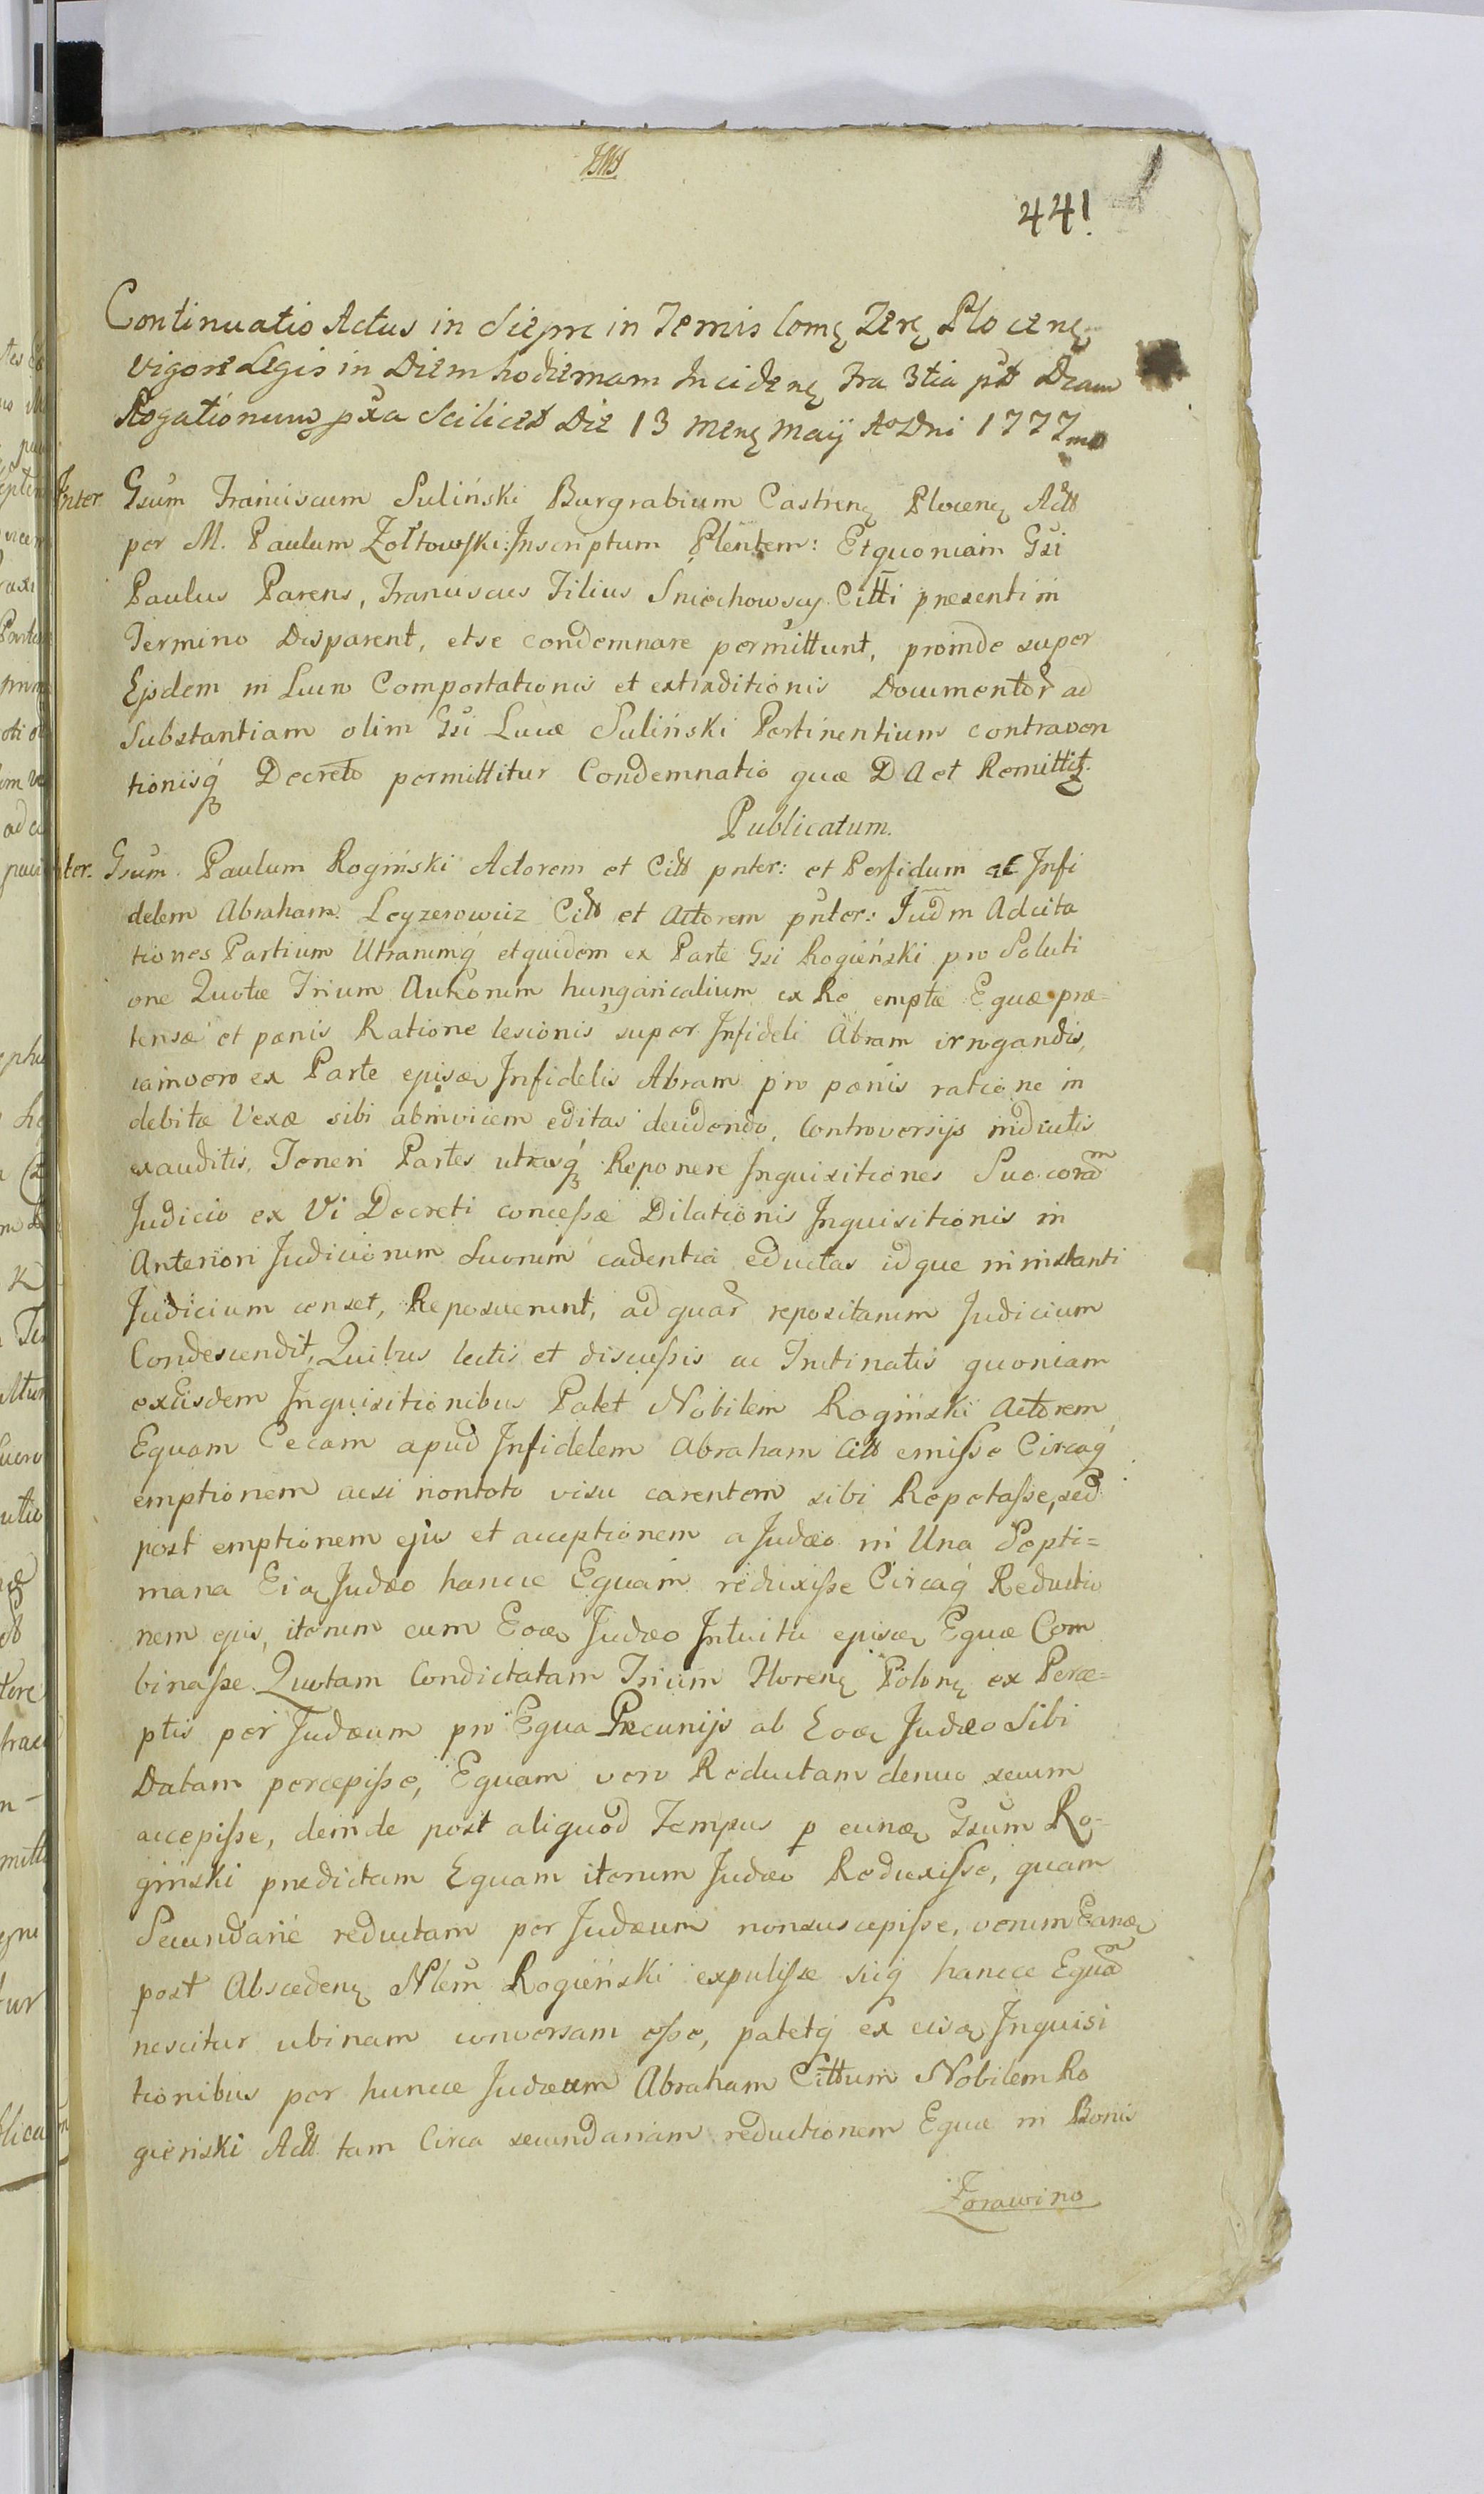 441.
Continuatio Actus in Sierpc in Termis Comę Terę Plocenę
Vigore Legis in Diem hodiernam Incidenę Fra 3tia pst Dcam
Rogationum pxa Scilicet Die 13 Menę Maÿ Ao Dni 1777mo
Inter Gsum Franciscum Suliński Burgrabium Castrenę Plocenę Actt
per M. Paulum Zołtowski: Inscriptum Plentem: Et quoniam Gsi
Paulus Parens, Franciscus Filius Sniechowscy Citti presenti in
Termino Disparent, et se condemnare permittunt, proinde super
Ejsdem in Lucro Comportationis et extraditionis Documentor ad
Substantiam olim Gsi Lucæ Suliński Pertinentium contraven
tionisq Decreto permittitur Condemnatio quæ D A et Remittit.
Publicatum.
Inter. Gsum Paulum Rogiński Actorem et Citt pnter: et Perfidum ac Infi
delem Abraham Leyzerowicz Citt et Actorem pnter: Judm Adcita
tiones Partium Utrarumq et quidem ex Parte Gsi Rogieński pro Soluti
one Quotæ Trium Aureorum hungaricalium ex Re emptæ Equæ præ=
tensæ et pænis Ratione lesionis super Infideli Abram irrogandis,
jam vero ex Parte ejusę Infidelis Abram pro pænis ratione in
debitæ Vexæ sibi abinvicem editas decidendo, Controversijs inductis
exauditis, Teneri Partes utrasq Reponere Inquisitiones Suo coram
Judicio ex Vi Decreti concessæ Dilationis Inquisitionis in
Anteriori Judiciorum Suorum cadentia eductas idque in instanti
Judicium censet, Reposuerunt, ad quar repositarum Judicium
Condescendit, Quibus lectis et discussis ac Trutinatis quoniam
ex Eisdem Inquisitionibus Patet Nobilem Rogiński Actorem
Equam Cecam apud Infidelem Abraham Citt emisse Circaq
emptionem acsi non toto visu carentem sibi Repetasse, sed
post emptionem ejus et acceptionem a Judæo in Una Septi=
mana Eię Judæo hancce Equam reduxisse Circaq Reductio
nem ejus, iterum cum Eoę Judæo Intuitu ejusę Equæ Com
binasse Quotam Condictatam Trium Florenę Polonę ex Perce=
ptis per Judæum pro Equa Pecunijs ab Eoę Judæo Sibi
Datam percepisse, Equam vero Reductam denuo secum
accepisse, deinde post aliquod Tempus p eunę Gsum Ro-
giński predictam Equam iterum Judæo Reduxisse, quam
Secundarié reductam per Judæum non suscepisse, verum Eanę
post Abscedenę Nlem Rogieński expulisse sicq hancce Equam
nescitur ubinam conversam esse, patetq ex eisę Inquisi
tionibus per huncce Judæum Abraham Cittum Nobilem Ro
gieński Actt tam Circa secundariam reductionem Equæ in Bonis
Zorawino